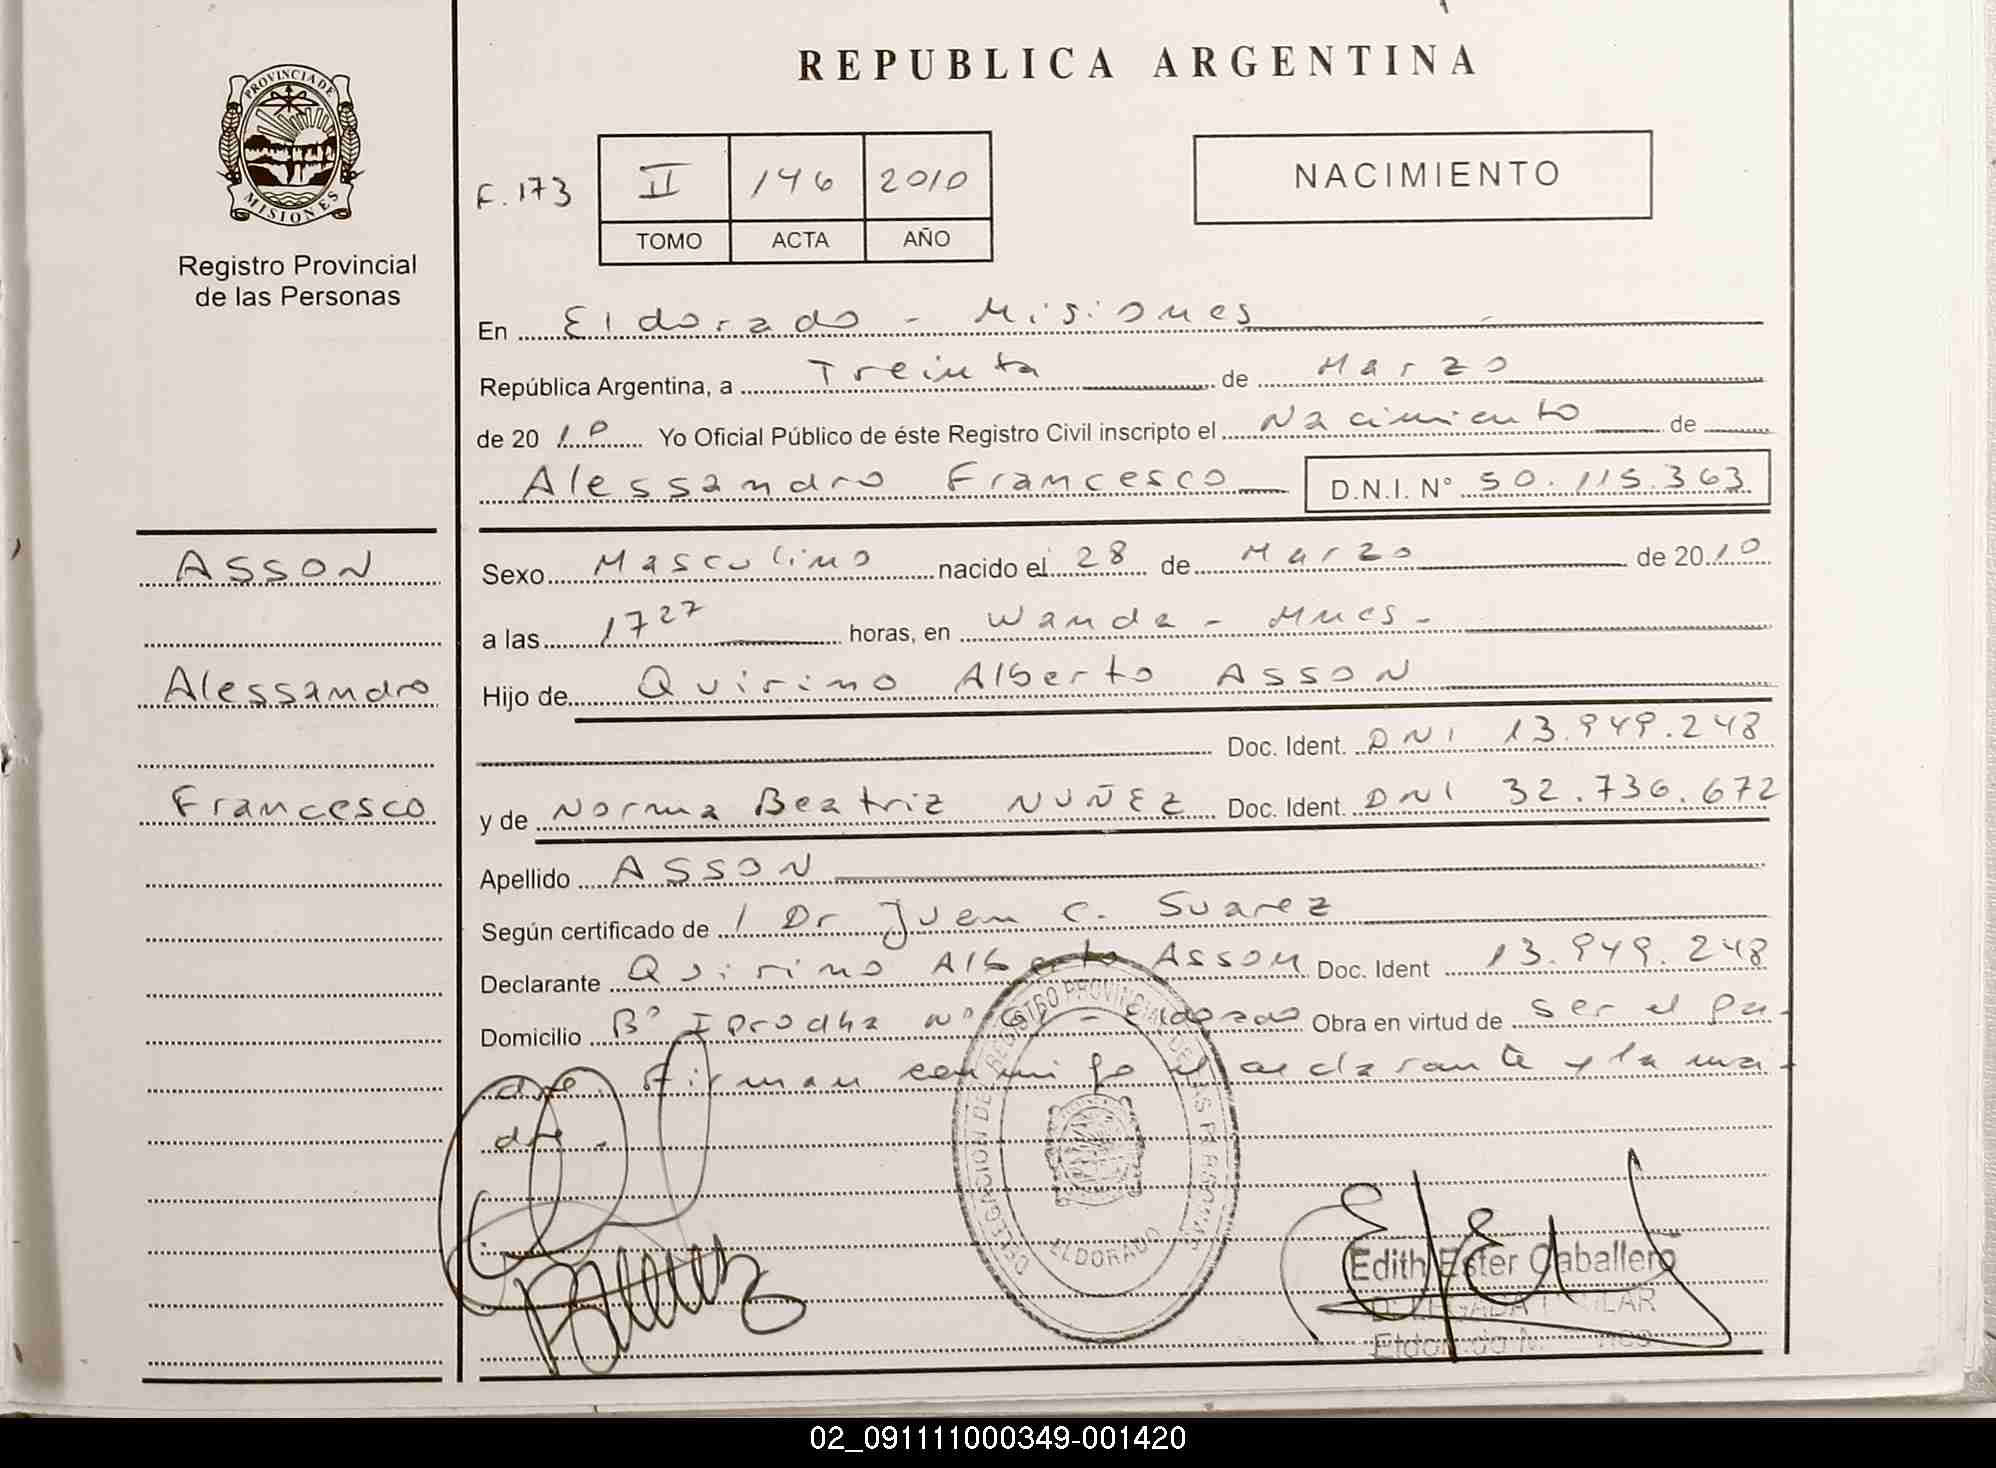 REPUBLICA ARGENTINA
PROVINCIA DE
MISIONES
Registro Provincial
de las Personas
F. 173
II 146 2010
TOMO ACTA AÑO
NACIMIENTO
En Eldorado - Misiones
República Argentina, a Treinta de Marzo
de 20 10 Yo Oficial Público de éste Registro Civil inscripto el Nacimiento de
Alessandro Francesco D.N.I. N° 50.115.363
ASSON
Alessandro
Francesco
Sexo Masculino nacido el 28 de Marzo de 20 10
a las 17 27 horas, en Wanda - Mnes -
Hijo de Quirino Alberto ASSON
Doc. Ident. DNI 13.949.248
y de Norma Beatriz NUÑEZ Doc. Ident. DNI 32.736.672
Apellido ASSON
Según certificado de / Dr Juan C. Suarez
Declarante Quirino Alberto Asson Doc. Ident 13.949.248
Domicilio B° Iprodha N° - Eldorado Obra en virtud de ser el pa-
dre. Firman conmigo el declarante y la ma-
dre -
DELEGACION DEL REGISTRO PROVINCIAL DE LAS PERSONAS
ELDORADO
Edith Ester Caballero
DELEGADA TITULAR
Eldorado
02_091111000349-001420